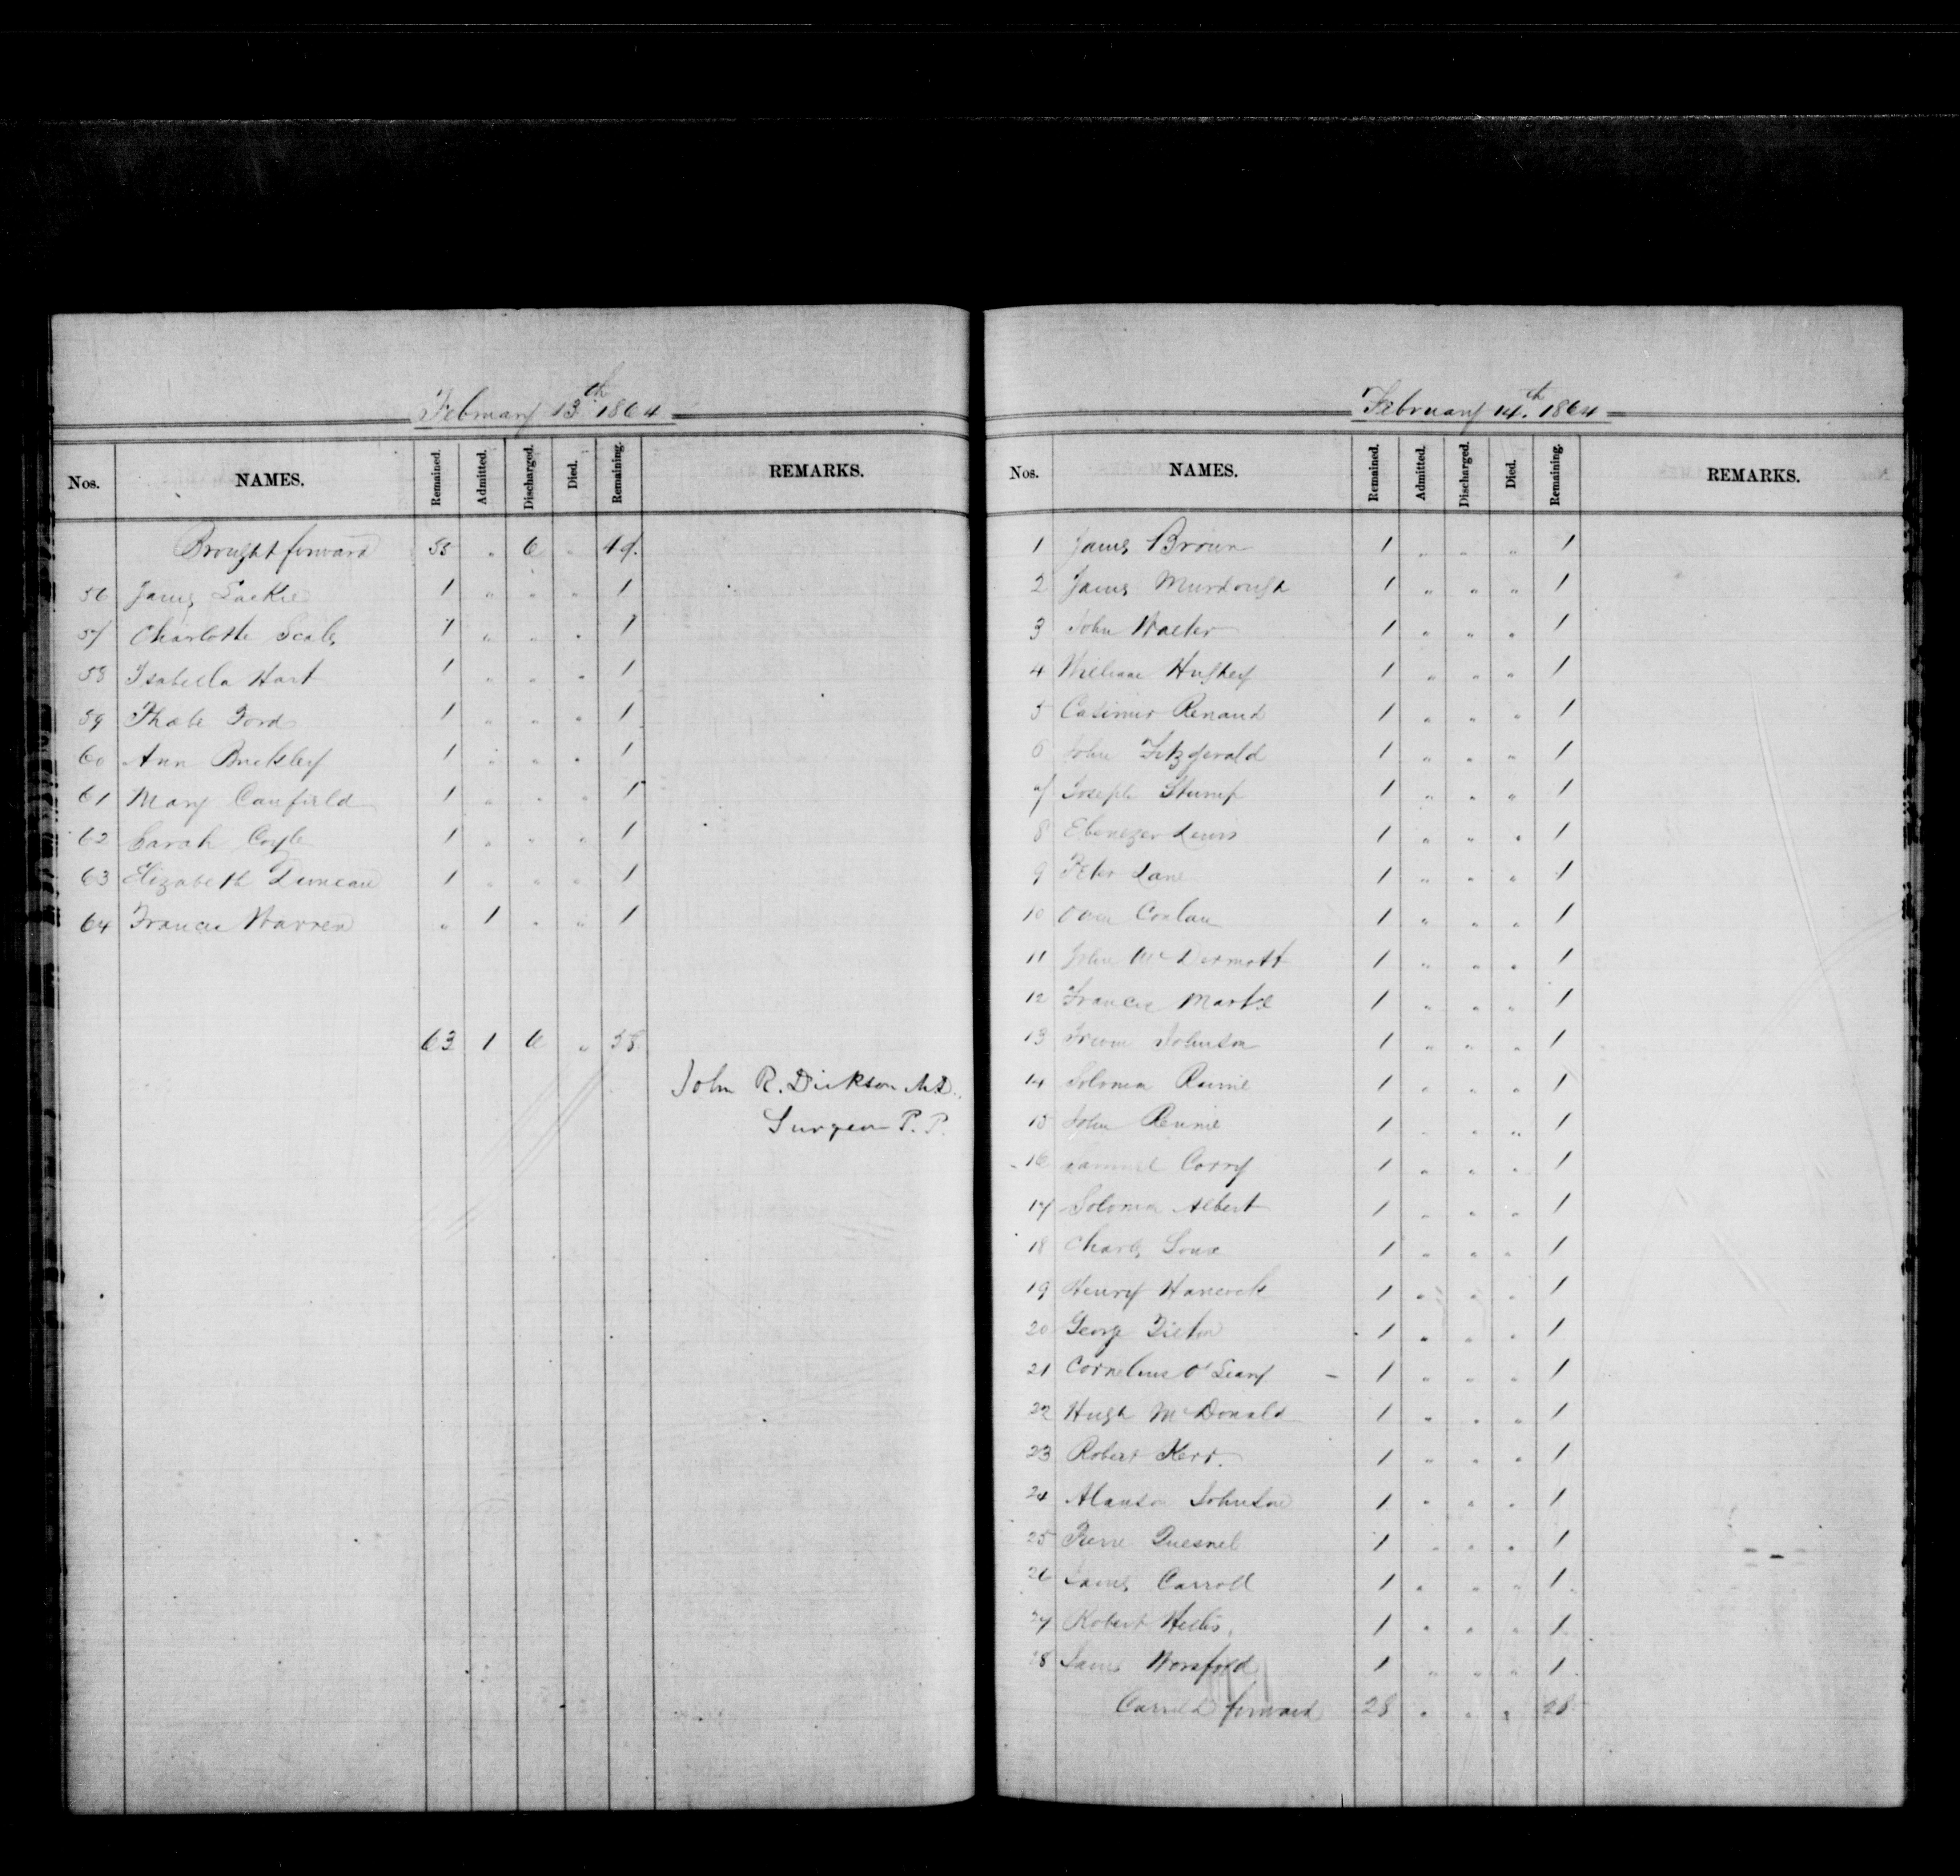 February 13th 1864
Nos. NAMES. Remained. Admitted. Discharged. Died. Remaining. REMARKS.
Brought forward 55 " 6 " 49.
56 James Lackie 1 " " " 1
57 Charlotte Scales 1 " " " 1
58 Isabella Hart 1 " " " 1
59 Phœbe Ford 1 " " " 1
60 Ann Buckley 1 " " " 1
61 Mary Canfield 1 " " " 1
62 Sarah Coyle 1 " " " 1
63 Elizabeth Duncan 1 " " " 1
64 Francis Warren " 1 " " 1
63 1 6 " 58.
John R. Dickson M.D.
Surgeon P. P.
February 14th. 1864
Nos. NAMES. Remained. Admitted. Discharged. Died. Remaining. REMARKS.
1 James Brown 1 " " " 1
2 James Murdough 1 " " " 1
3 John Walter 1 " " " 1
4 William Hughey 1 " " " 1
5 Casimir Renaud 1 " " " 1
6 John Fitzgerald 1 " " " 1
7 Joseph Stump 1 " " " 1
8 Ebenezer Lewis 1 " " " 1
9 Peter Lane 1 " " " 1
10 Owen Conlan 1 " " " 1
11 John McDermott 1 " " " 1
12 Francis 1 " " " 1
13 Johnson 1 " " " 1
14 Solomon 1 " " " 1
15 John Rennie 1 " " " 1
16 Samuel Corry 1 " " " 1
17 Solomon Albert 1 " " " 1
18 Charles 1 " " " 1
19 Henry Hancock 1 " " " 1
20 George 1 " " " 1
21 Cornelius O'Leary 1 " " " 1
22 Hugh McDonald 1 " " " 1
23 Robert Kerr. 1 " " " 1
24 Alanson Johnson 1 " " " 1
25 Pierre Quesnel 1 " " " 1
26 James Carroll 1 " " " 1
27 Robert 1 " " " 1
28 James Worsfold 1 " " " 1
Carried forward 28 " " " 28